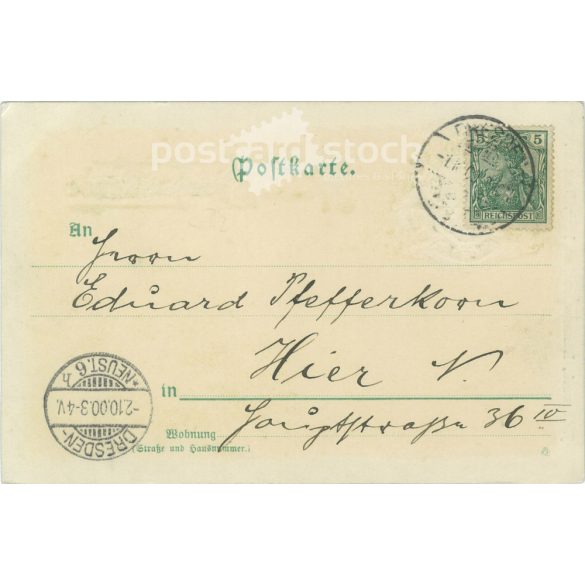 postcardstock
Postkarte.
5 5
REICHSPOST
An
Herrn
Eduard Pfefferkorn
Hier N.
in
Hauptstraße 36 IV
Wohnung
(Straße und Hausnummer.)
DRESDEN-
-2.10.00.3-4V.
*NEUST.6 h
DRESDEN